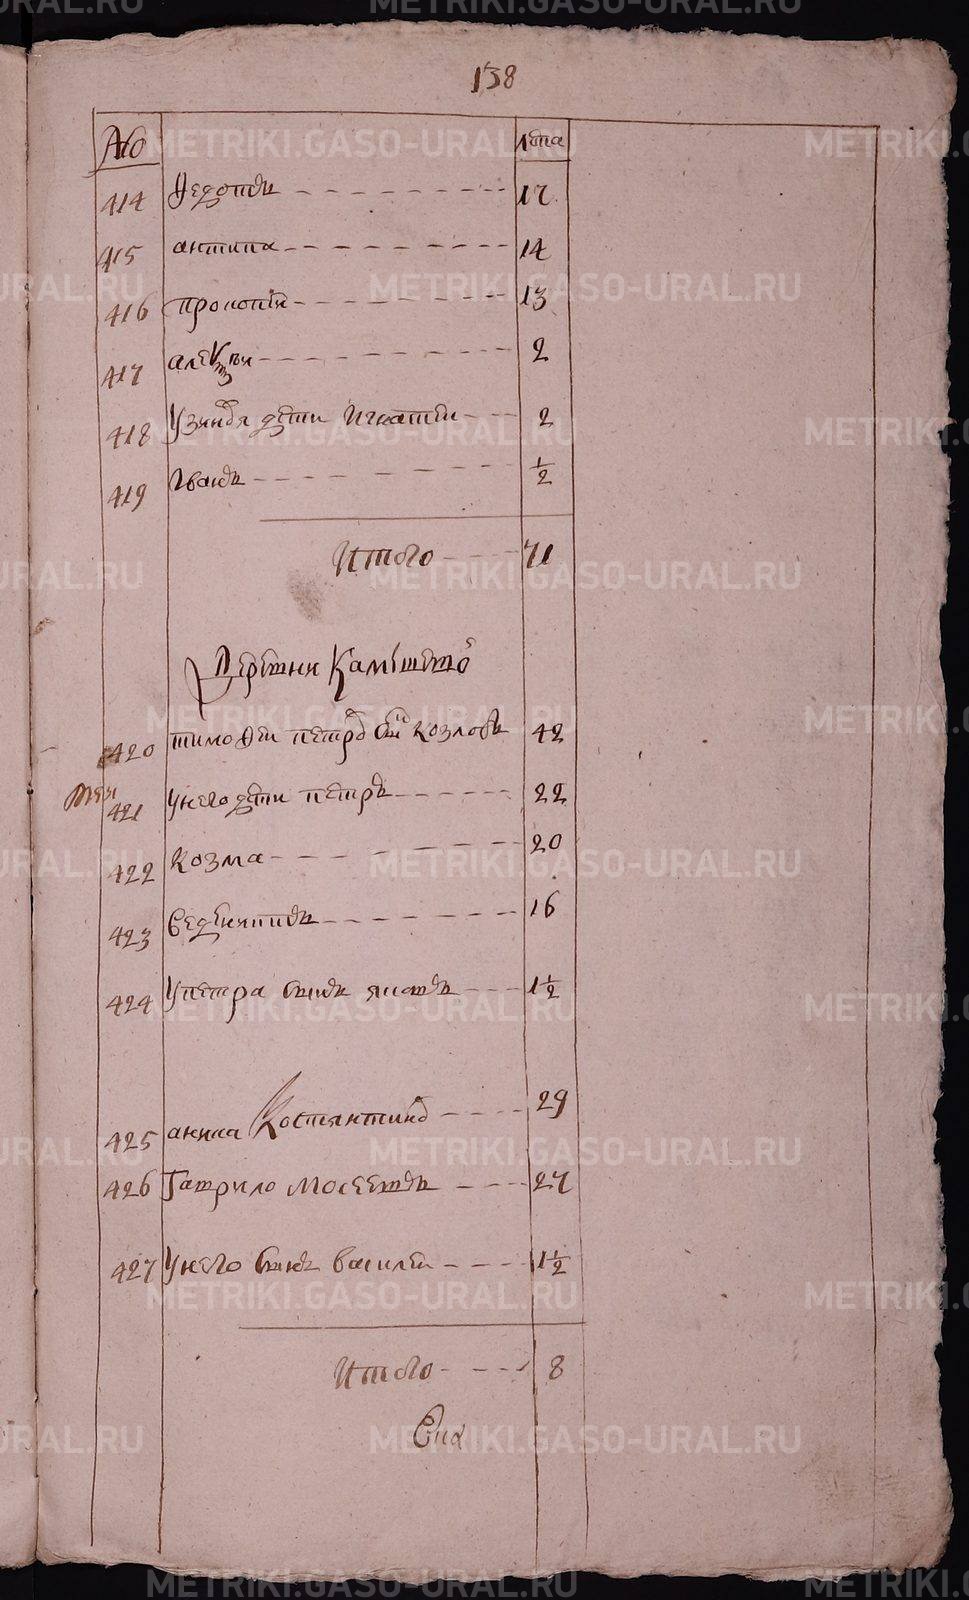 138
№ лета
414 Федотъ 17
415 антипа 14
416 прокопеи 13
417 алеѯѣи 2
418 У дети Игнатеи 2
419 Иванъ ½
Итого 71
Деревни
420 тимофеи петровъ снъ козловъ 42
421 У него дети петръ 22
422 козма 20
423 16
424 У петра сынъ яковъ 1½
425 Костянтинов 29
426 Гаврило Мосеевъ 27
427 У него сынъ василеи 1½
Итого 8
METRIKI.GASO-URAL.RU